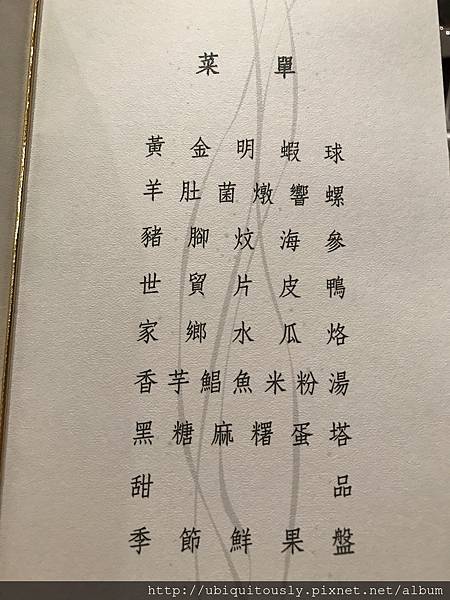 菜單
黃金明蝦球
羊肚菌燉響螺
豬腳炆海參
世貿片皮鴨
家鄉水瓜烙
香芋鯧魚米粉湯
黑糖麻糬蛋塔
甜品
季節鮮果盤
http://ubiquitously.pixnet.net/album